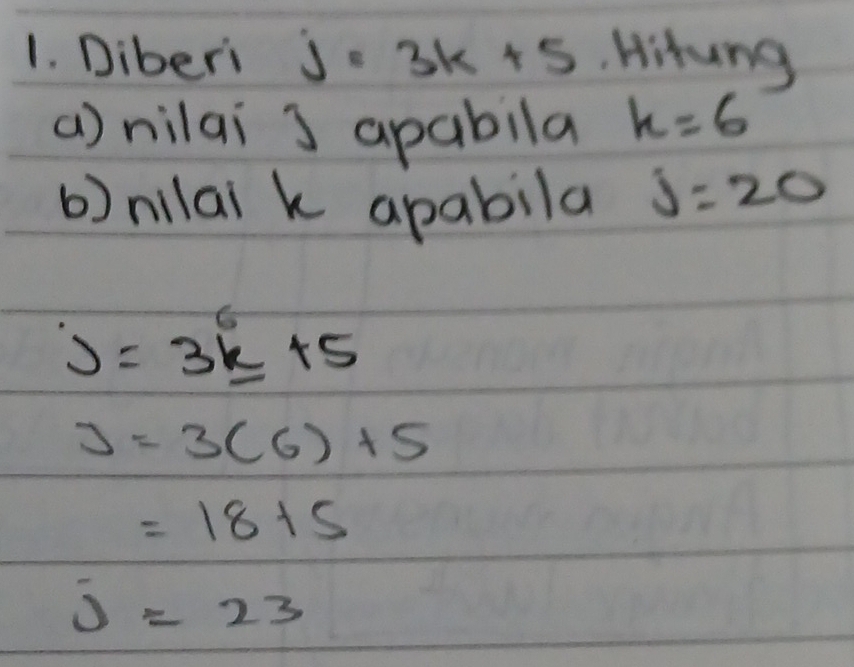 1. Diberi j = 3k + 5. Hitung
a) nilai j apabila k = 6
b) nilai k apabila j = 20
6
j = 3k + 5
j = 3(6) + 5
= 18 + 5
j = 23